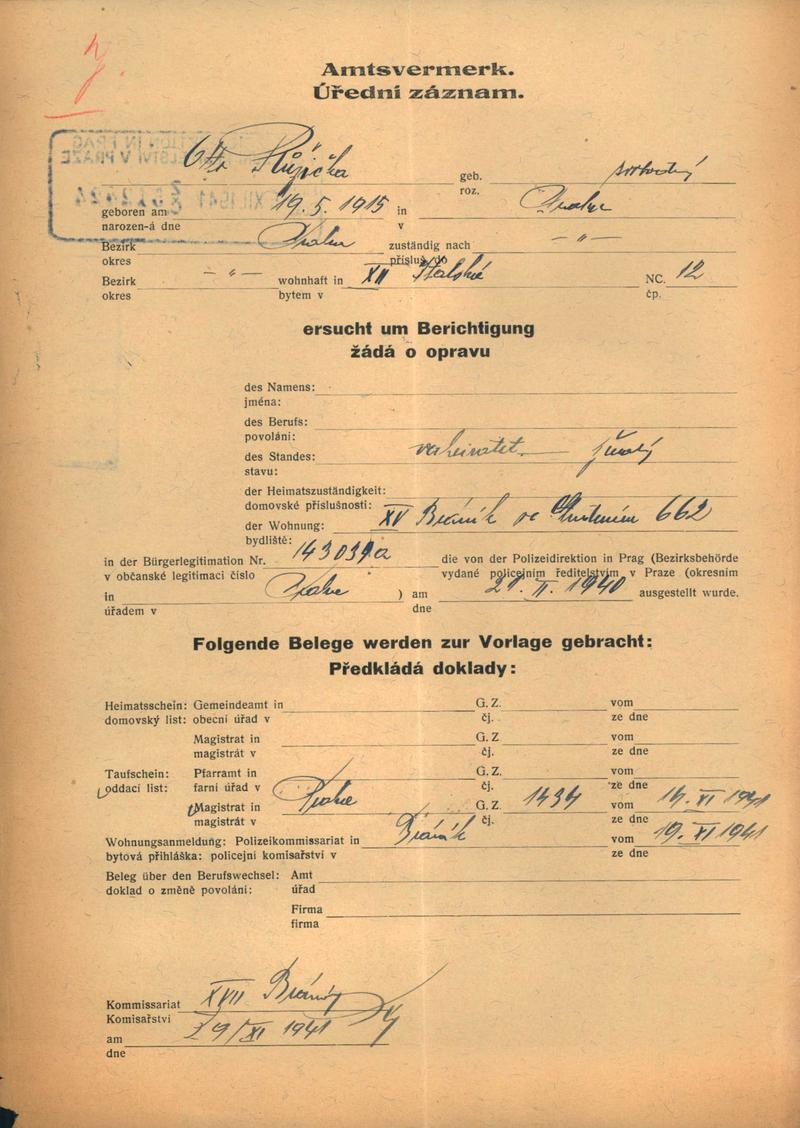 Amtsvermerk.
Úřední záznam.
Otto Růžička geb.
roz.
geboren am 19.5.1915 in Praha
narozen-á dne v
Bezirk Praha zuständig nach — " —
okres přísluš. do
Bezirk — " — wohnhaft in XII Italská NC. 12
okres bytem v čp.
ersucht um Berichtigung
žádá o opravu
des Namens:
jména:
des Berufs:
povolání:
des Standes: verheiratet — ženatý
stavu:
der Heimatszuständigkeit:
domovské příslušnosti:
der Wohnung: XV Braník 662
bydliště:
in der Bürgerlegitimation Nr. 143031a die von der Polizeidirektion in Prag (Bezirksbehörde
v občanské legitimaci číslo vydané policejním ředitelstvím v Praze (okresním
in Praha ) am 21. II. 1940 ausgestellt wurde.
úřadem v dne
Folgende Belege werden zur Vorlage gebracht:
Předkládá doklady:
Heimatsschein: Gemeindeamt in G. Z. vom
domovský list: obecní úřad v čj. ze dne
Magistrat in G. Z vom
magistrát v čj. ze dne
Taufschein: Pfarramt in G. Z. vom
oddací list: farní úřad v Praha čj. 1434 ze dne 14. XI 1941
Magistrat in G. Z. vom
magistrát v čj. ze dne
Wohnungsanmeldung: Polizeikommissariat in Braník vom 19. XI 1941
bytová přihláška: policejní komisařství v ze dne
Beleg über den Berufswechsel: Amt
doklad o změně povolání: úřad
Firma
firma
Kommissariat XVII Braník
Komisařství
am 29/XI 1941
dne